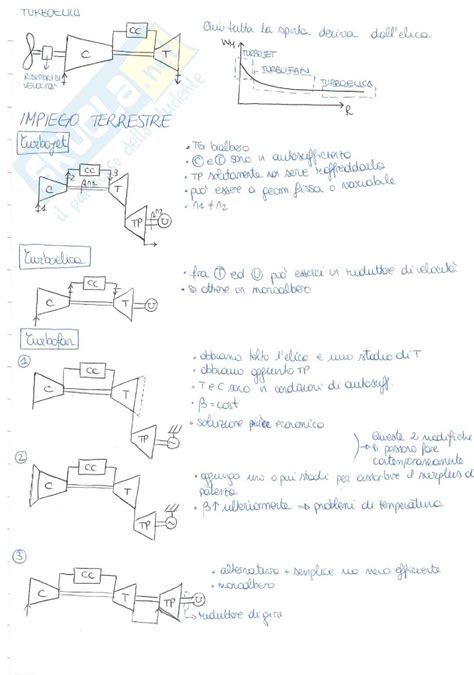 TURBOELICA
Qui tutta la spinta deriva dall'elica
CC
C
T
RIDUTTORE DI
VELOCITA'
WH
TURBOJET
TURBOFAN
TURBOELICA
R
SKUOLA.net
il paradiso dello studente
IMPIEGO TERRESTRE
turbojet
• TG bialbero
• C e T sono in autosufficienza
• TP solitamente non serve raffreddarla
• può essere a geom fissa o variabile
• n1 ≠ n2
CC
2
3
C
n1
T
1
TP
n2
U
turboelica
• fra T ed U può esserci un riduttore di velocità
• si ottiene un monoalbero
CC
C
T
U
turbofan
1
• abbiamo tolto l'elica e uno stadio di T
• abbiamo aggiunto TP
• T e C sono in condizioni di autosuff.
• β = cost
• soluzione più economica
CC
C
T
TP
Queste 2 modifiche
si possono fare
contemporaneamente
2
• aggiungo uno o più stadi per assorbire il surplus di
potenza
• β↑ ulteriormente ⇒ problemi di temperatura
CC
C
T
TP
3
• alternativa + semplice ma meno efficiente
• monoalbero
CC
C
T
TP
U
riduttore di giri